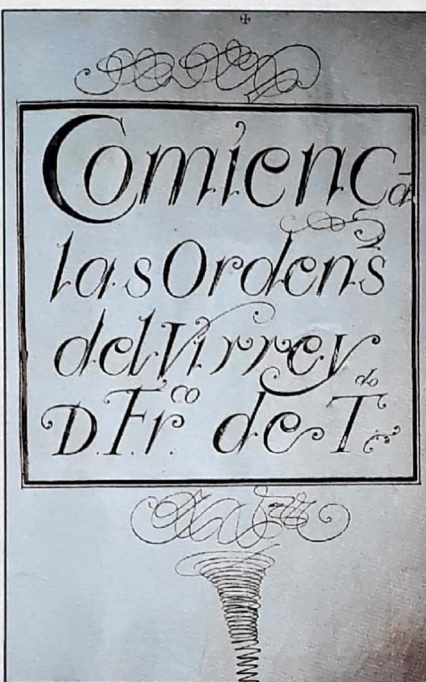 Comiençā
las Ordens̃
del Virrey
D. Fr.co de T.do